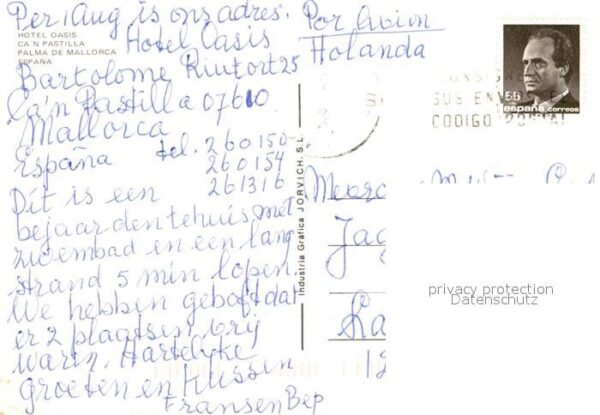 Per 1 Aug is ons adres.
HOTEL OASIS
CA'N PASTILLA
PALMA DE MALLORCA
ESPAÑA
Hotel Oasis
Bartolome Riutort 25
Ca'n Pastilla 07610
Mallorca
España tel. 260150
260154
261316
Dit is een
bejaardentehuis met
zwembad en een lang
strand 5 min lopen.
We hebben geboft dat
er 2 plaatsen vrij
warin. Hartelyke
groeten en Kussen
Frans en Bep
Industria Grafica JORVICH, S.L.
Por Avion
Holanda
55
españa correos
CODIGO POSTAL
privacy protection
Datenschutz